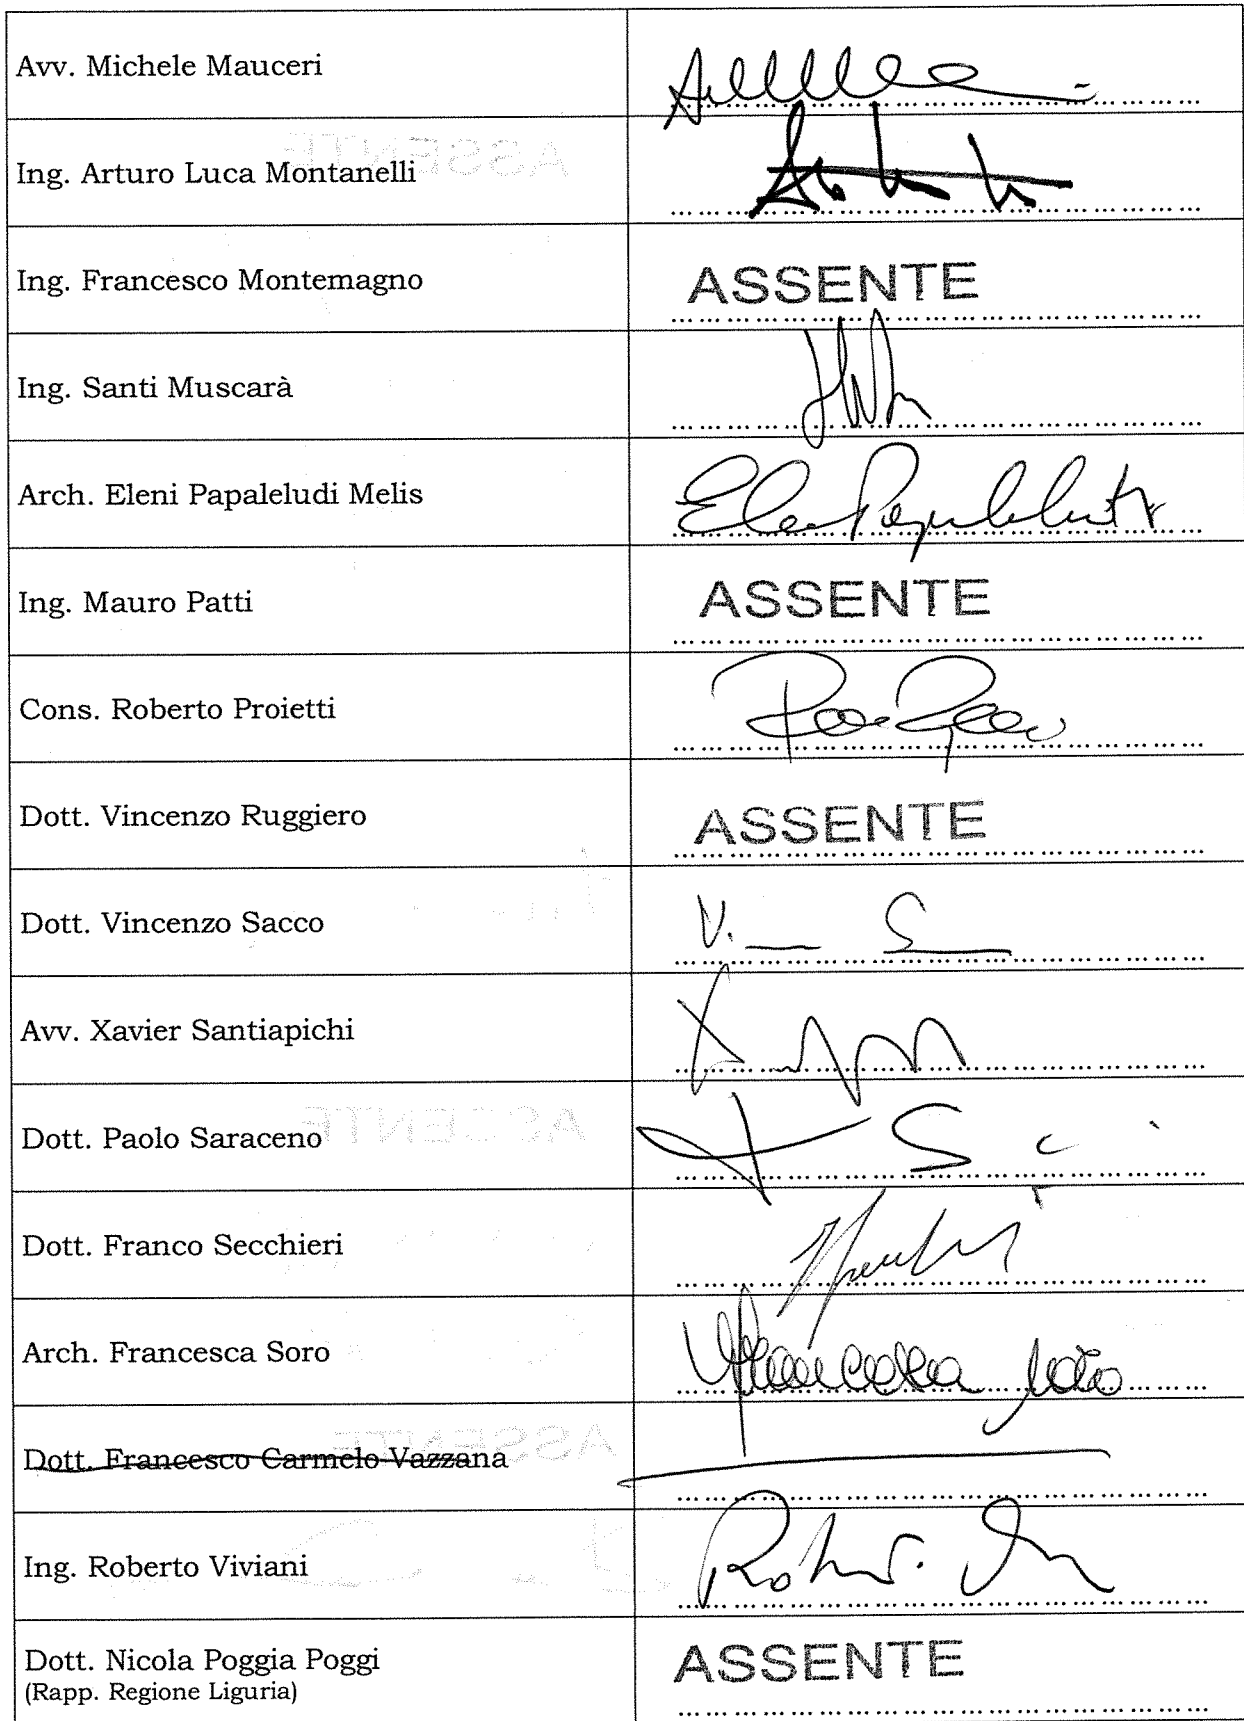 Avv. Michele Mauceri
Ing. Arturo Luca Montanelli
Ing. Francesco Montemagno
ASSENTE
Ing. Santi Muscarà
Arch. Eleni Papaleludi Melis
Ing. Mauro Patti
ASSENTE
Cons. Roberto Proietti
Dott. Vincenzo Ruggiero
ASSENTE
Dott. Vincenzo Sacco
V. S
Avv. Xavier Santiapichi
Dott. Paolo Saraceno
Dott. Franco Secchieri
Arch. Francesca Soro
Francesca Soro
Dott. Francesco Carmelo Vazzana
Ing. Roberto Viviani
Dott. Nicola Poggia Poggi
(Rapp. Regione Liguria)
ASSENTE